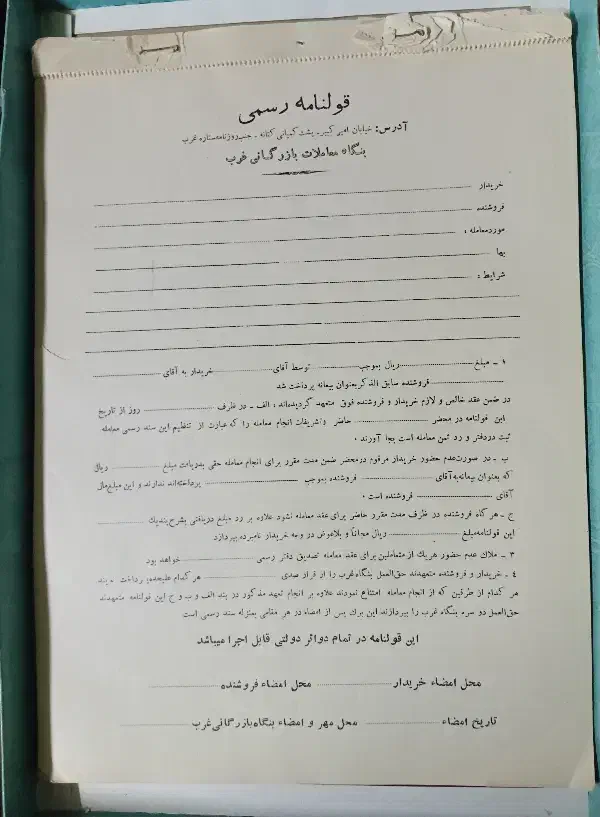 قولنامه رسمی
آدرس: خیابان امیر کبیر ـ پشت کمپانی کتانه ـ جنب روزنامه ستاره غرب
بنگاه معاملات بازرگانی غرب
خریدار
فروشنده
مورد معامله :
بها
شرایط :
۱ ـ مبلغ ریال بموجب توسط آقای خریدار به آقای
فروشنده سابق الذکر بعنوان بیعانه پرداخت شد
در ضمن عقد خالص و لازم خریدار و فروشنده فوق متعهد گردیده‌اند : الف ـ در ظرف روز از تاریخ
این قولنامه در محضر حاضر و تشریفات انجام معامله را که عبارت از تنظیم این سند رسمی معامله
ثبت در دفتر و رد ثمن معامله است بجا آورند .
ب ـ در صورت عدم حضور خریدار مرقوم در محضر ضمن مدت مقرر برای انجام معامله حقی بدریافت مبلغ ریال
که بعنوان بیعانه به آقای فروشنده بموجب پرداخته‌اند ندارند و این مبلغ مال
آقای فروشنده است .
ج ـ هر گاه فروشنده در ظرف مدت مقرر حاضر برای عقد معامله نشود علاوه بر رد مبلغ دریافتی بشرح بند یک
این قولنامه مبلغ ریال مجاناً و بلاعوض در وجه خریدار نامبرده بپردازد
۳ ـ ملاک عدم حضور هر یک از متعاملین برای عقد معامله تصدیق دفتر رسمی خواهد بود
۴ ـ خریدار و فروشنده متعهدند حق‌العمل بنگاه غرب را از قرار صدی هر کدام علیحده پرداخت
هر کدام از طرفین که از انجام معامله امتناع نمودند علاوه بر انجام تعهد مذکور در بند الف و ب و ج این قولنامه متعهدند
حق‌العمل دو سره بنگاه غرب را بپردازند این برگ پس از امضاء در هر مقامی بمنزله سند رسمی است
این قولنامه در تمام دوائر دولتی قابل اجرا میباشد
محل امضاء خریدار محل امضاء فروشنده
تاریخ امضاء محل مهر و امضاء بنگاه بازرگانی غرب